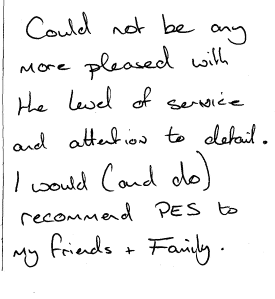 Could not be any
more pleased with
the level of service
and attention to detail.
I would (and do)
recommend PES to
my friends + Family.